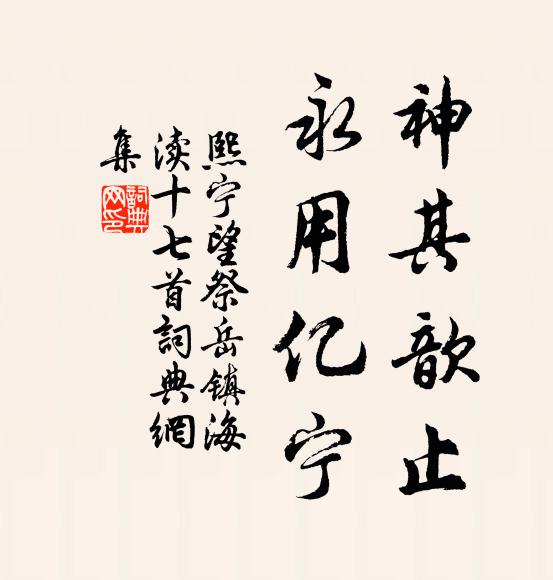 神其歆止
永用亿宁
熙宁望祭岳镇海
渎十七首詞典網
集
詞典
网印